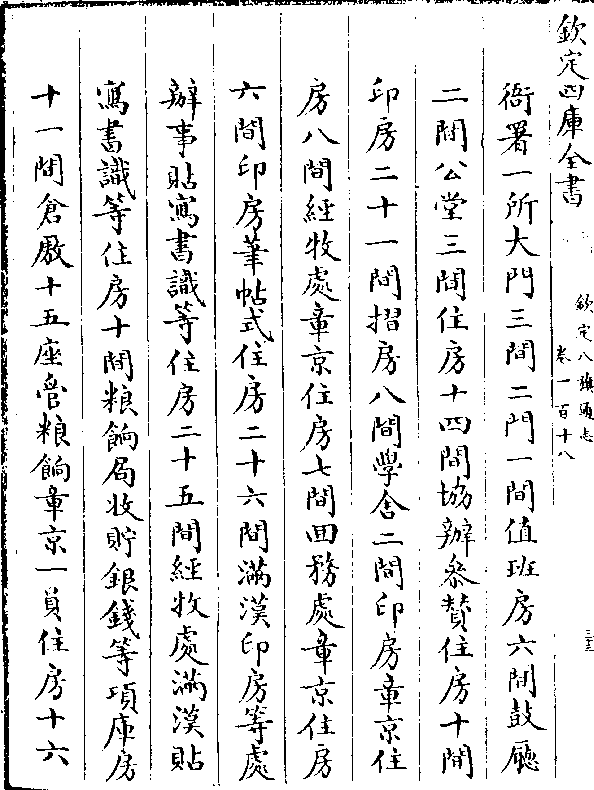 欽定四庫全書
欽定八旗通志
卷一百十八
三十三
衙署一所大門三間二門一間值班房六間鼓廳
二間公堂三間住房十四間協辦叅贊住房十間
印房二十一間摺房八間學舍二間印房章京住
房八間經牧處章京住房七間回務處章京住房
六間印房筆帖式住房二十六間滿漢印房等處
辦事貼寫書識等住房二十五間經牧處滿漢貼
寫書識等住房十間粮餉局收貯銀錢等項庫房
十一間倉廒十五座管粮餉章京一員住房十六